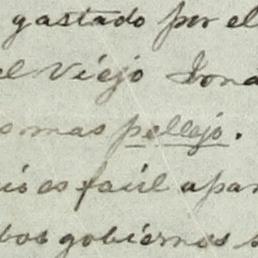 gastado por el
el Viejo
mas pellejo.
es facil apar
gobiernos